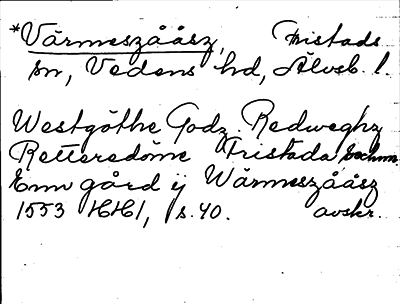 *Värmeszååsz, Fristads
sn, Vedens hd, Älvsb. l.
Westgöthe Godz. Redweghz
Retteredöme Fristada
Enn gård ij Wärmeszååsz
1553 HH1, s. 40. avskr.